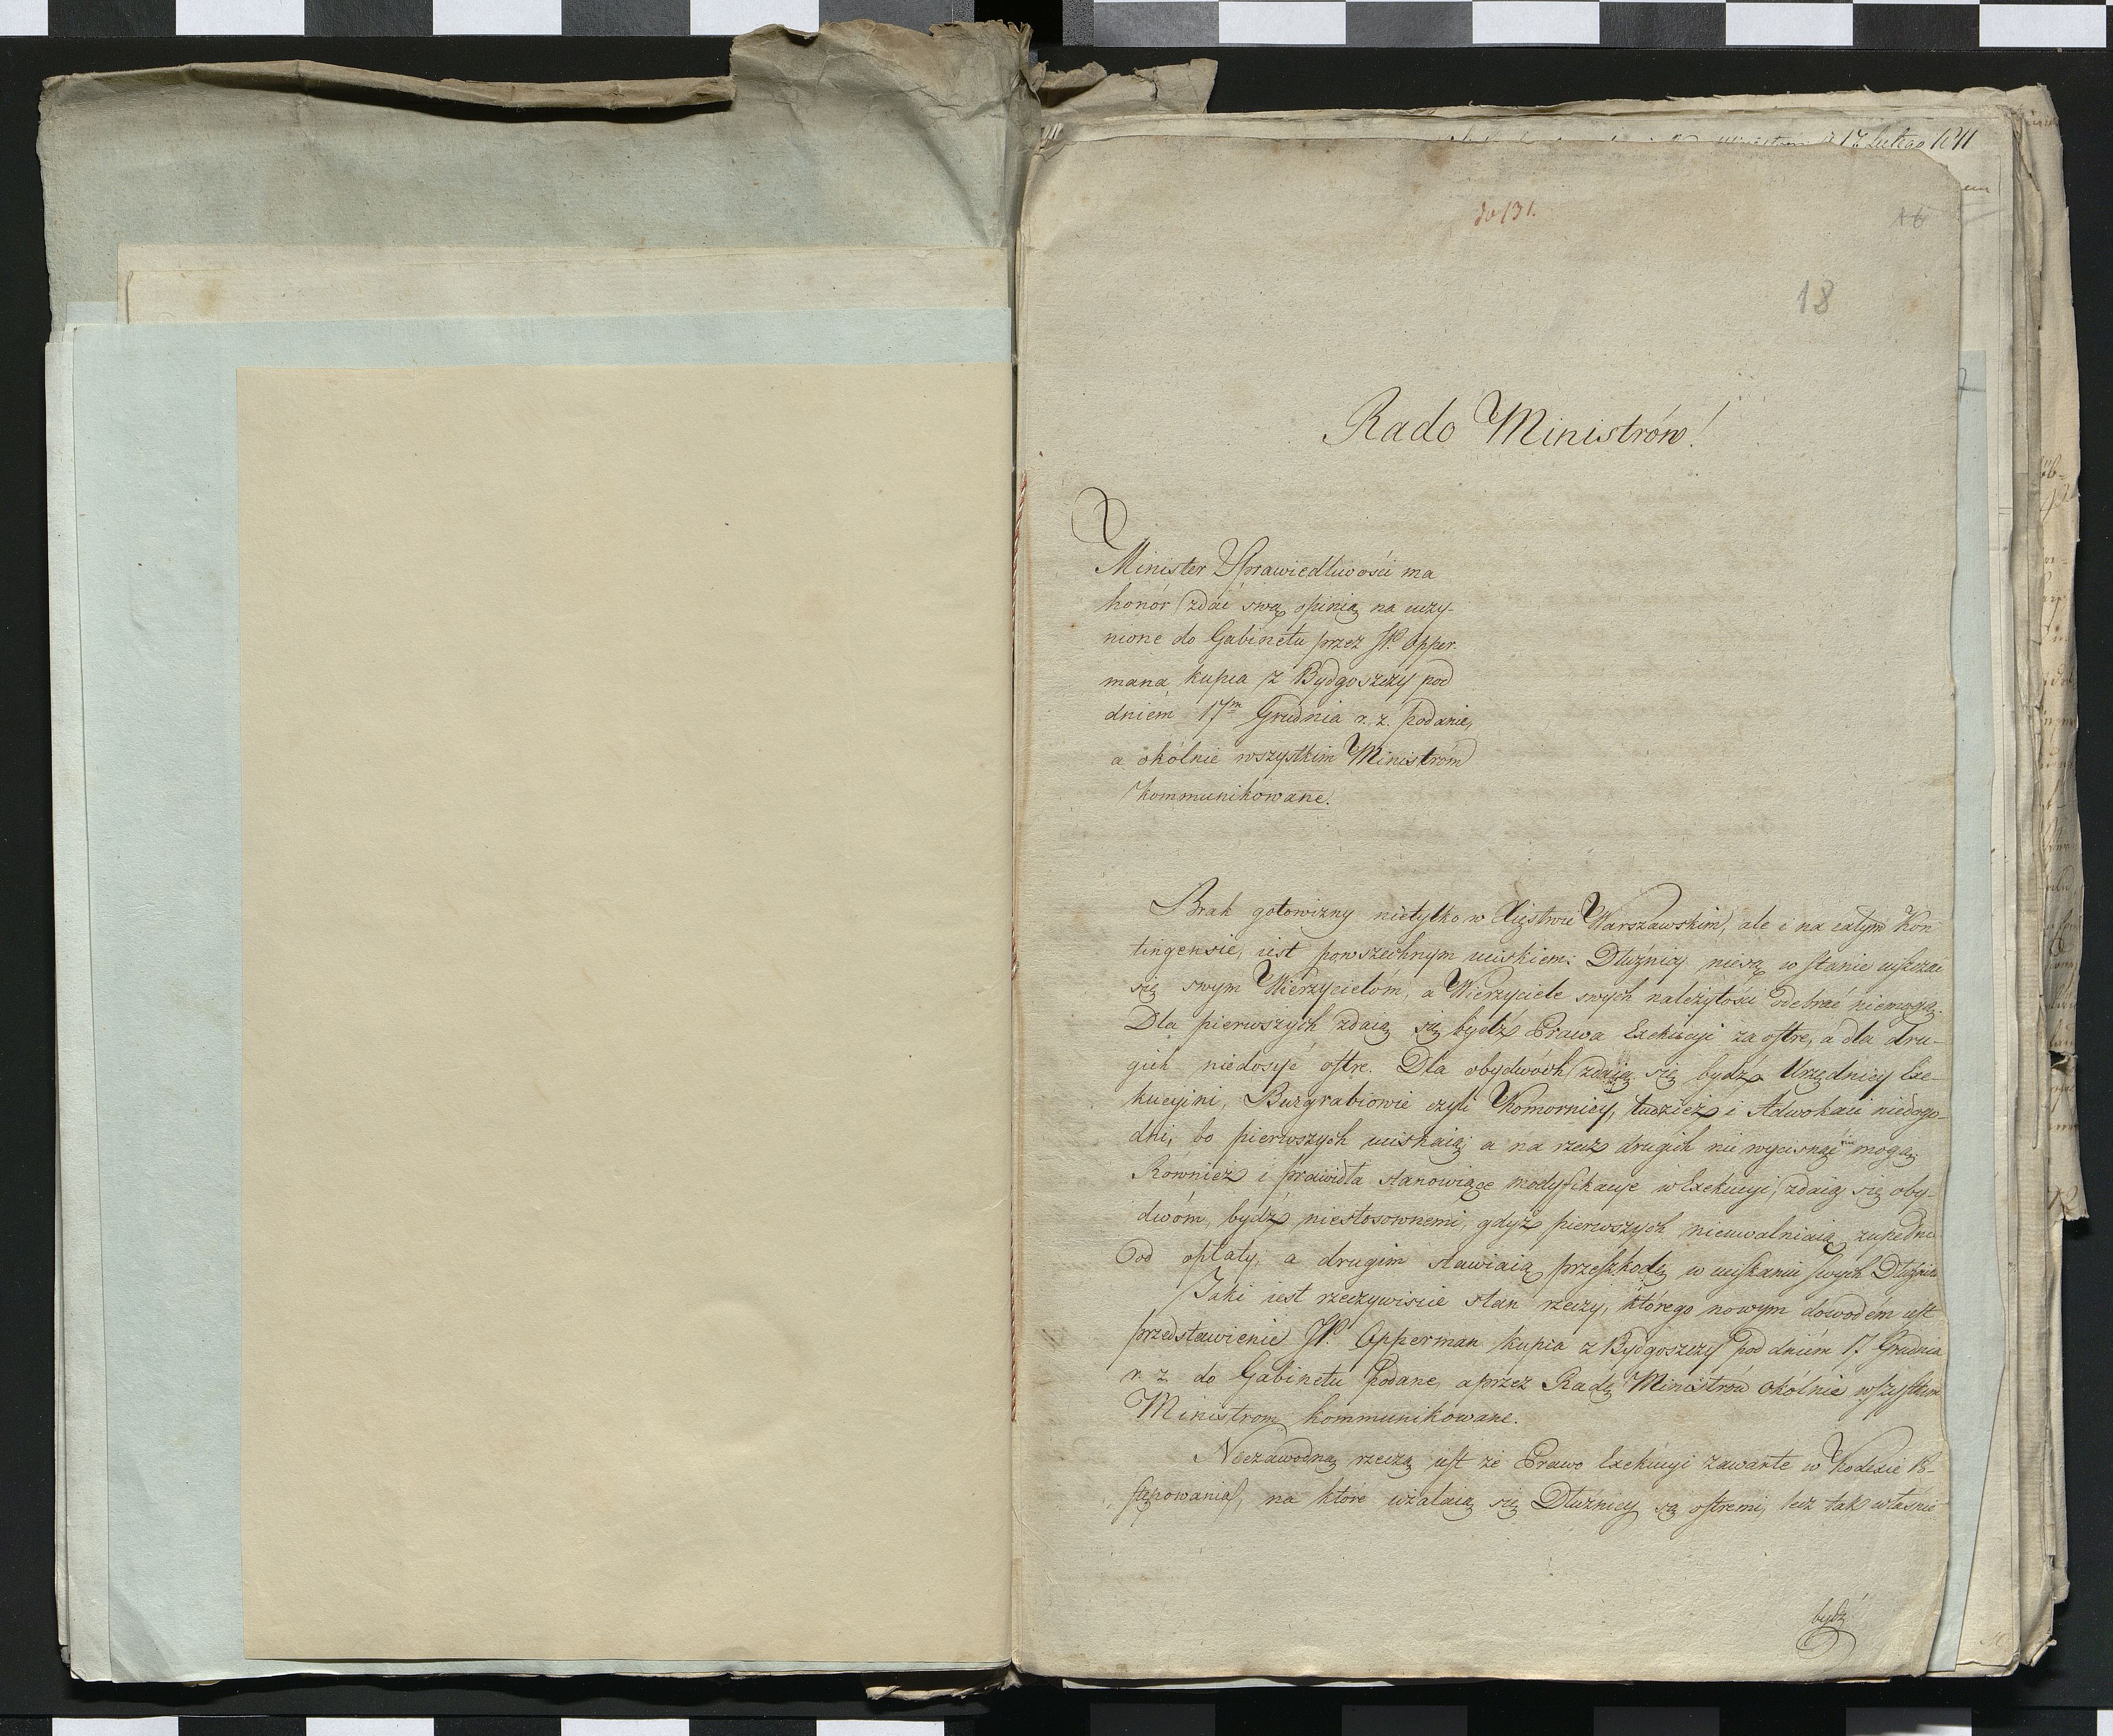 17 Lutego 1811
do 131.
16
18
Rado Ministrów!
Minister Sprawiedliwości ma
honór zdać swą opinią na uczy-
nione do Gabinetu przez JP. Opper-
mana kupca z Bydgoszczy pod
dniem 17m Grudnia r. z. podanie,
a okólnie wszystkim Ministróm
kommunikowane.
Brak gotowizny nietylko w Xięstwie Warszawskim, ale i na całym Kon-
tingensie, iest powszechnym uciskiem: Dłużnicy niesą w stanie uiszczać
się swym Wierzycielóm, a Wierzyciele swych należytości odebrać niemogą.
Dla pierwszych zdaią się bydź Prawa Exekucyi za ostre, a dla dru-
gich niedosyć ostre. Dla obydwóch zdaią się bydź Urzędnicy Exe-
kucyini, Burgrabiowie czyli Komornicy, tudzież i Adwokaci niedogo-
dni, bo pierwszych uciskaią a na rzecz drugich nic wycisnąć nie mogą.
Również i prawidła stanowiące modyfikacye w Exekucyi, zdaią się oby-
dwóm, bydź niestosownemi, gdyż pierwszych nieuwalniaią zupełnie
od opłaty, a drugim stawiaią przeszkodę w uciskaniu swych Dłużników
Taki iest rzeczywiście stan rzeczy, którego nowym dowodem iest
przedstawienie JP. Opperman kupca z Bydgoszczy pod dniem 17 Grudnia
r. z. do Gabinetu podane, a przez Radę Ministrów okólnie wszystkim
Ministrom kommunikowane.
Niezawodną rzeczą iest że Prawo Exekucyi zawarte w Kodexie Po-
stępowania, na które użalaią się Dłużnicy są ostremi, lecz tak właśnie
bydź